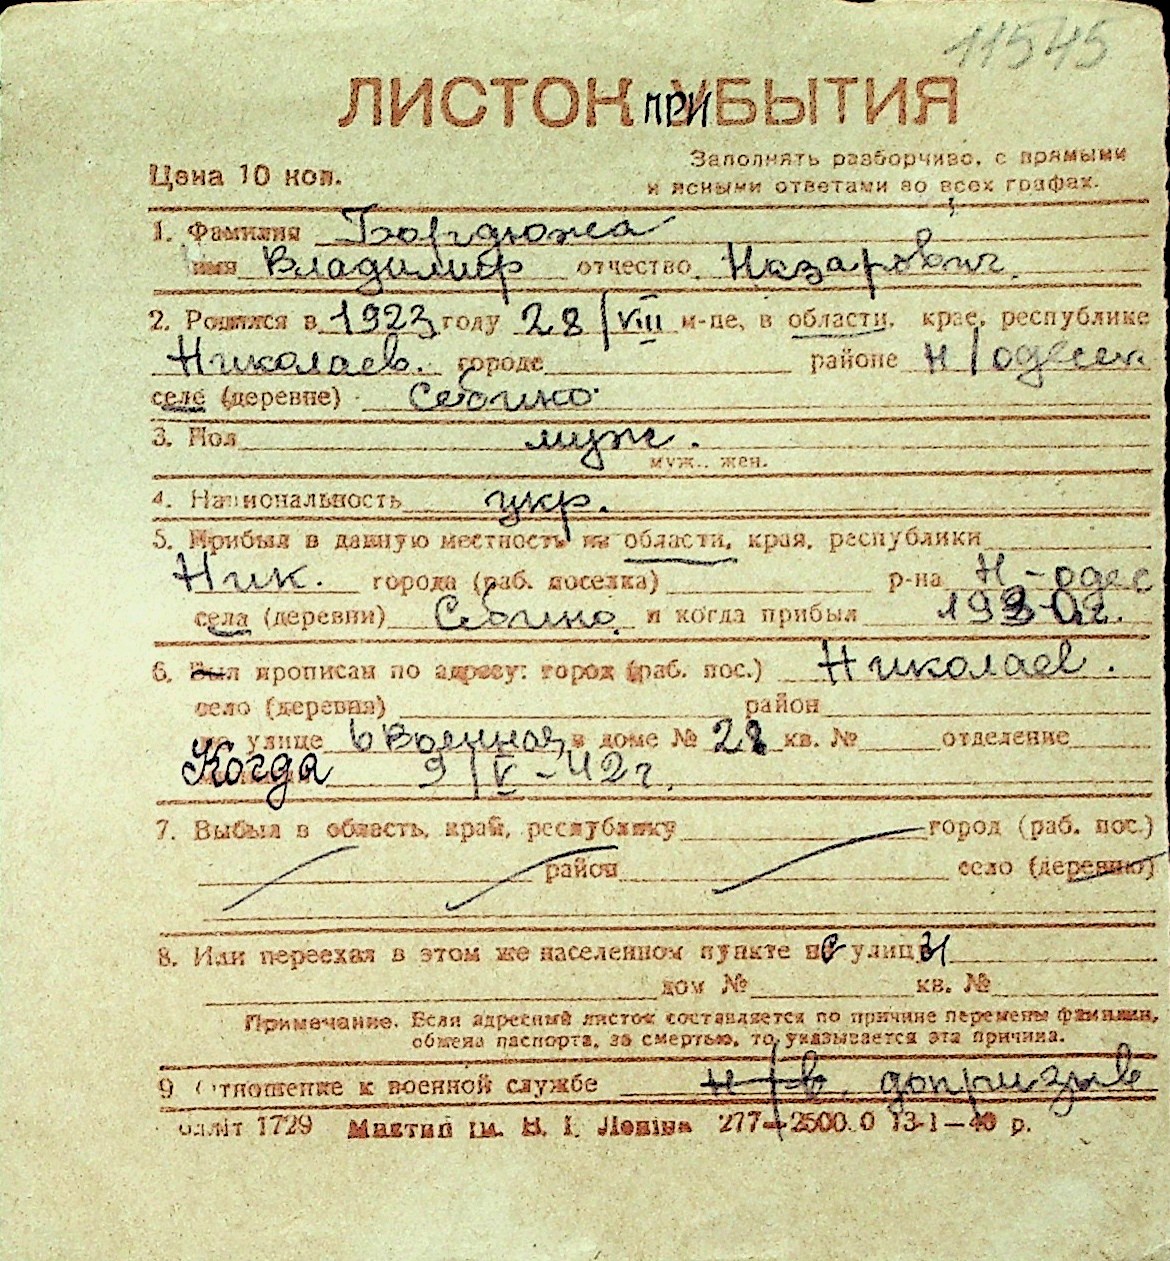 11545
ЛИСТОК ПРИБЫТИЯ
Заполнять разборчиво, с прямыми
Цена 10 коп.
и ясными ответами во всех графах.
1. Фамилия Бордюжа
имя Владимир отчество Назарович.
2. Родился в 1923 году 28/VIII м-це, в области, крае, республике
Николаев. городе районе Н/одесск.
селе (деревне) Себино.
3. Пол муж.
муж., жен.
4. Национальность укр.
5. Прибыл в данную местность из области, края, республики
Ник. города (раб. поселка) р-на Н-одес
села (деревни) Себино и когда прибыл
6. Был прописан по адресу: город (раб. пос.) Николаев.
село (деревня) район
по улице 6 Военная в доме № 28 кв. № отделение
Когда 9/V-42 г.
7. Выбыл в область, край, республику город (раб. пос.)
район село (деревню)
8. Или переехал в этом же населенном пункте с улицы
дом № кв. №
Примечание. Если адресный листок составляется по причине перемены фамилии,
обмена паспорта, за смертью, то указывается эта причина.
9 Отношение к военной службе н/в. допризыв
1729 ім. В. І. Леніна 277—2500.0 13-1—40 р.